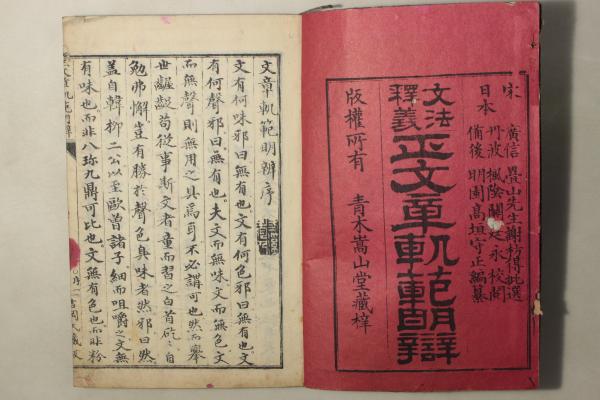 宋 廣信 疊山先生謝枋得批選
日本 丹波 楓陰關定永校閲
備後 明園高垣守正編纂
文法
釋義
正文章軌範明辯
版權所有 青木嵩山堂藏梓
文章軌範明辨序
文有何味邪曰無有也文有何色邪曰無有也文
有何聲邪曰無有也夫文而無味文而無色文
而無聲則無用之具焉耳不必講可也然而舉
世齷齪苟從事斯文者童而習之白首矻矻自
勉弗懈豈有勝於聲色臭味者然邪曰然
蓋自韓柳二公以至歐曾諸子細而咀嚼之文無
有味也而非八珍九鼎可比也文無有色也而非粉